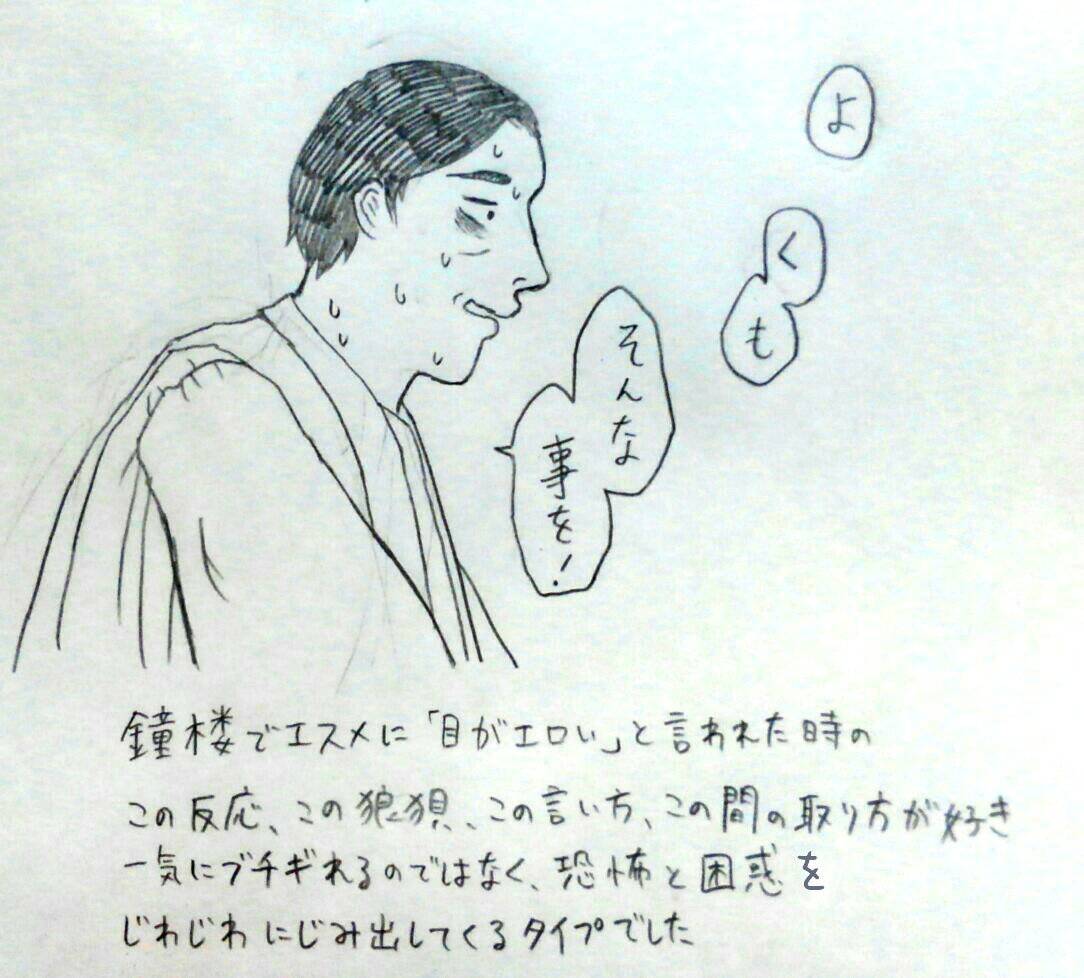 よ
く
も
そんな
事を!
鐘楼でエスメに「目がエロい」と言われた時の
この反応、この狼狽、この言い方、この間の取り方が好き
一気にブチギれるのではなく、恐怖と困惑を
じわじわにじみ出してくるタイプでした